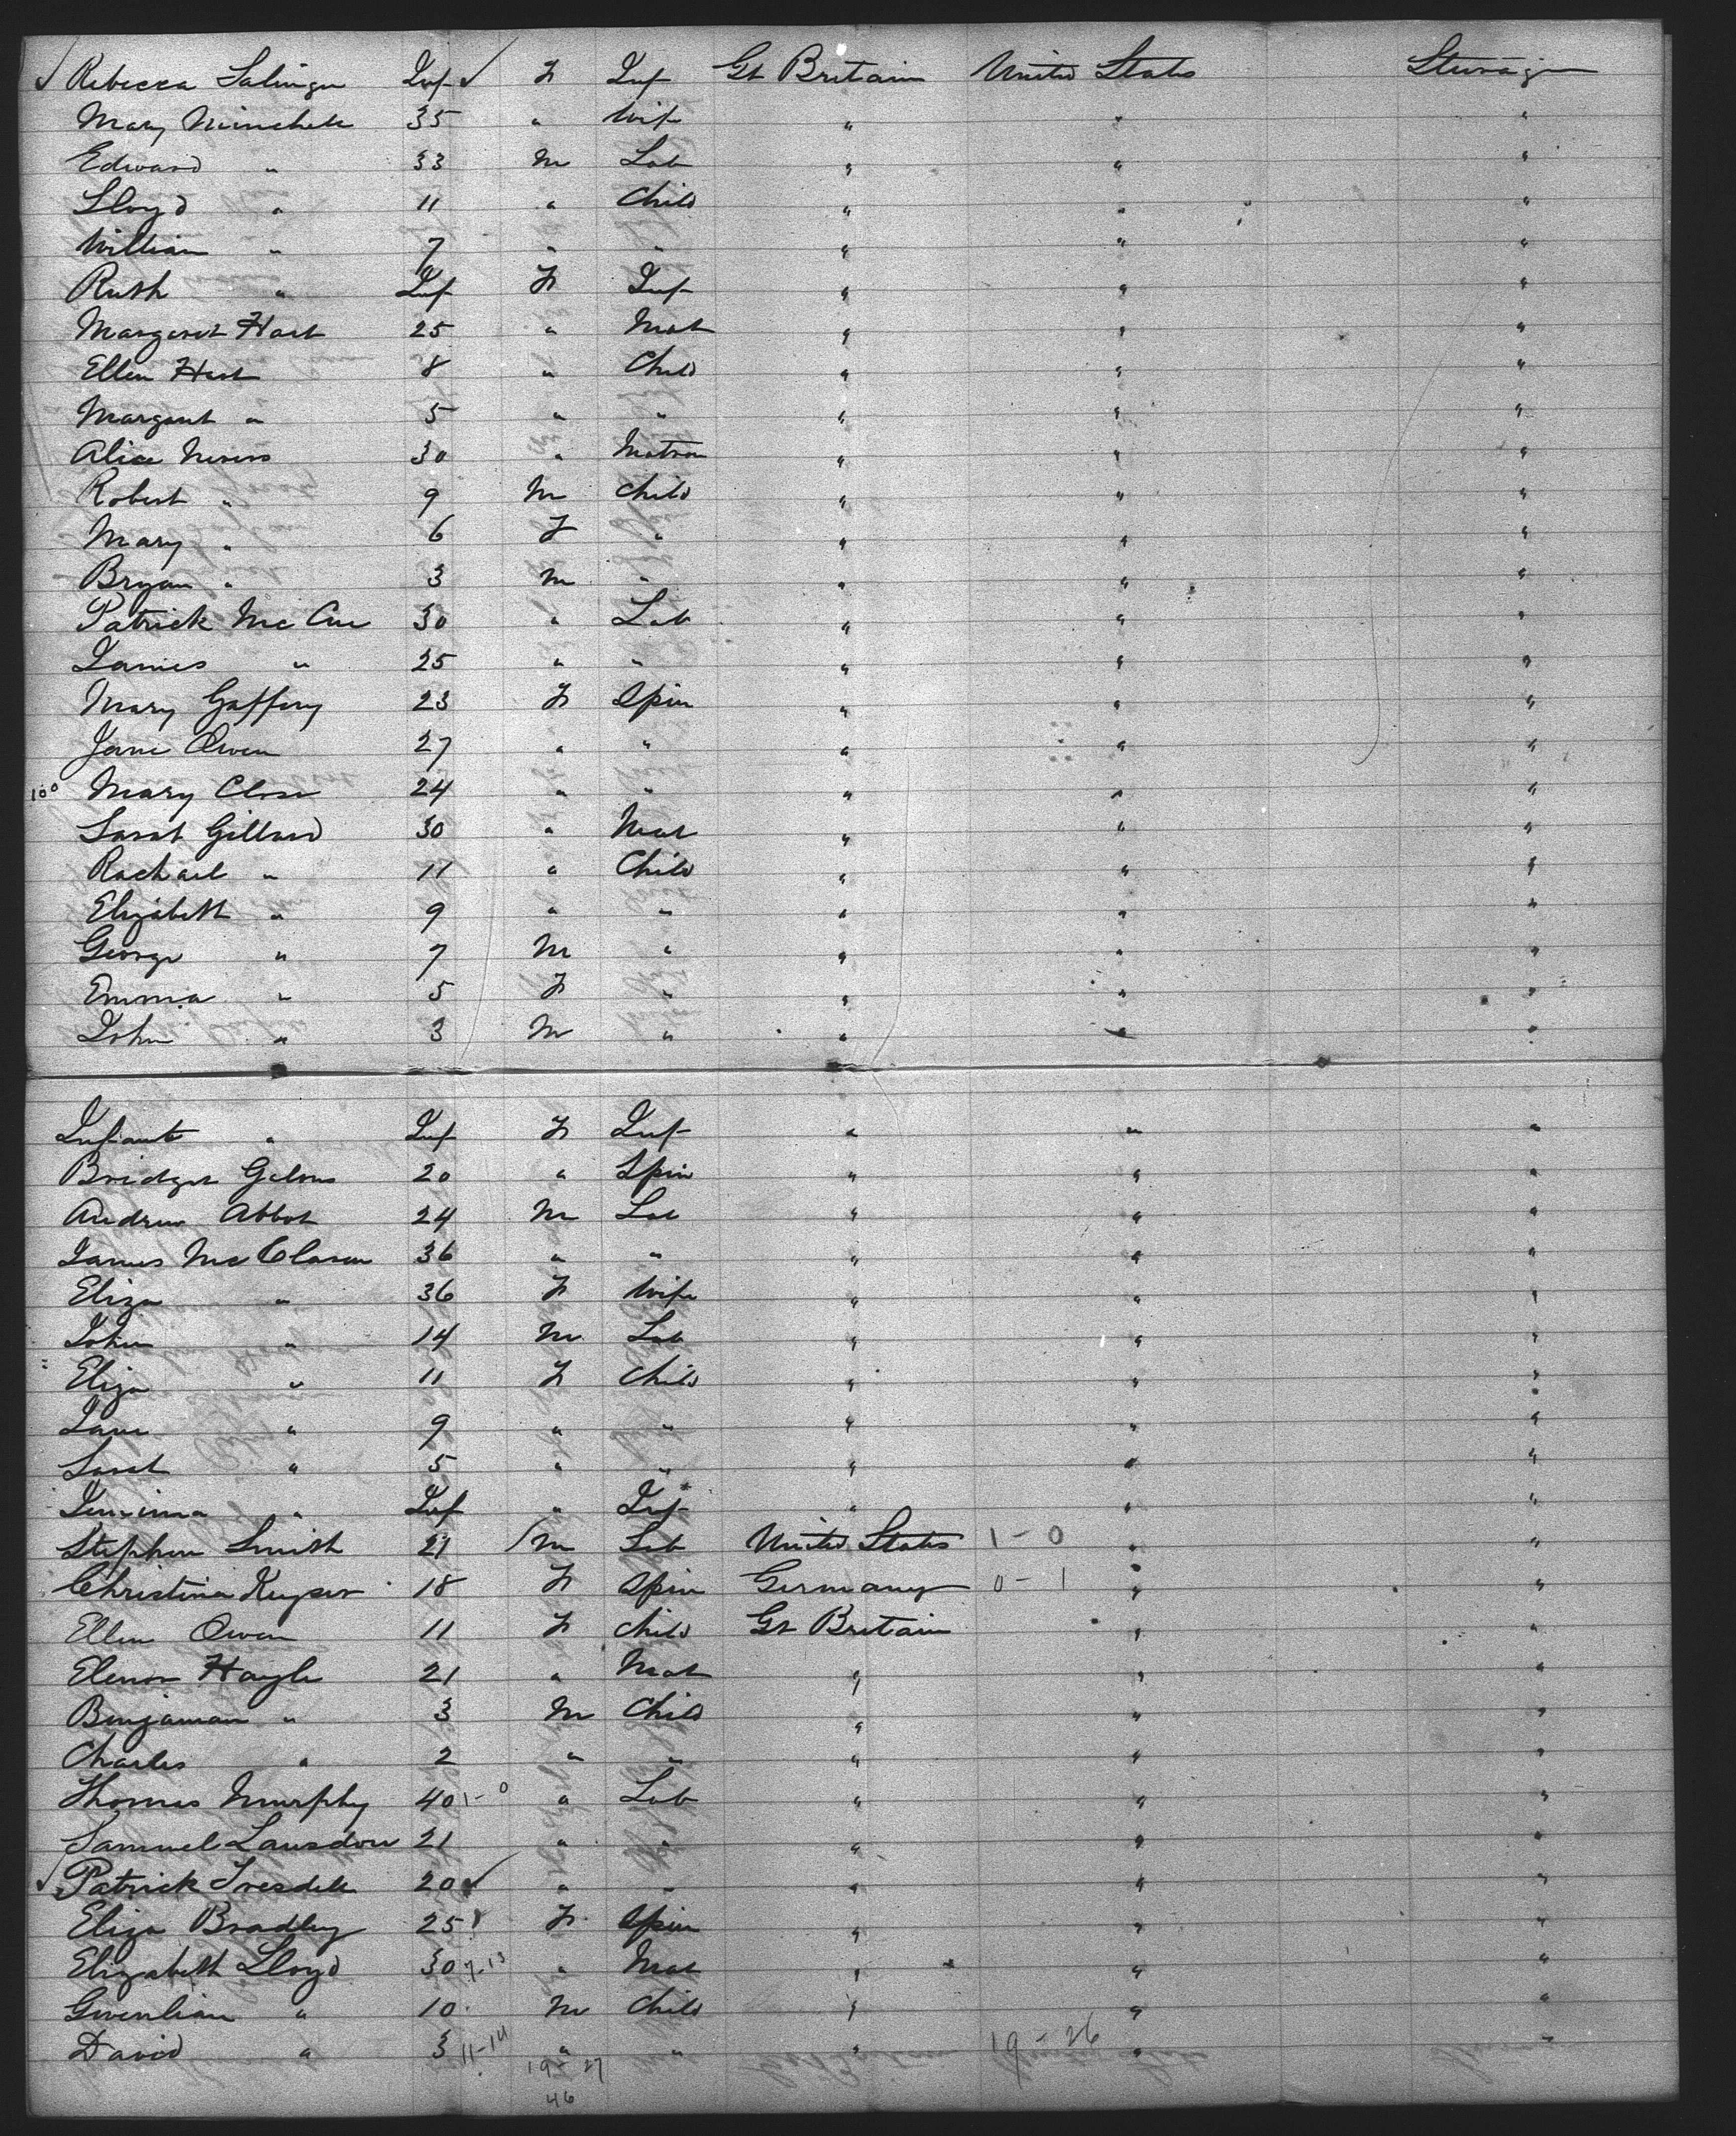 ✓ Rebecca Salinger Inf ✓ F Inf Gt Britain United States Steerage
Mary 35 " Wife " " "
Edward " 33 M Lab " " "
Lloyd " 11 " Child " " "
William " 7 " " " " "
Ruth " Inf F Inf " " "
Margaret Hart 25 " Mat " " "
Ellen Hart 8 " Child " " "
Margaret " 5 " " " " "
Alice 30 " Matron " " "
Robert " 9 M Child " " "
Mary " 6 F " " " "
Bryan " 3 M " " " "
Patrick McCue 30 " Lab " " "
James " 25 " " " " "
Mary Gaffeny 23 F Spin " " "
Jane Owen 27 " " " " "
100 Mary Close 24 " " " " "
Sarah Gillard 30 " Mat " " "
Rachael " 11 " Child " " "
Elizabeth " 9 " " " " "
George " 7 M " " " "
Emma " 5 F " " " "
John " 3 M " " " "
Infant " Inf F Inf " " "
Bridget 20 " Spin " " "
Andrew Abbot 24 M Lab " " "
James 36 " " " " "
Eliza " 36 F Wife " " "
John " 14 M Lab " " "
Eliza " 11 F Child " " "
Jane " 9 " " " " "
Sarah " 5 " " " " "
" Inf " Inf " " "
Stephen Smith 21 M Lab United States 1-0 " "
Christina Keyser 18 F Spin Germany 0-1 " "
Ellen Owen 11 F Child Gt Britain " "
Elenor Hayle 21 " Mat " " "
Benjaman " 3 M Child " " "
Charles " 2 " " " " "
Thomas Murphy 40 1-0 " Lab " " "
Samuel Lansdow 21 " " " " "
✓ Patrick 20 ✓ " " " " "
Eliza Bradley 25 F Spin " " "
Elizabeth Lloyd 30 7-13 " Mat " " "
Gwenlian " 10 M Child " " "
David " 3 11-14 " " " 19-26 " "
19-27
46